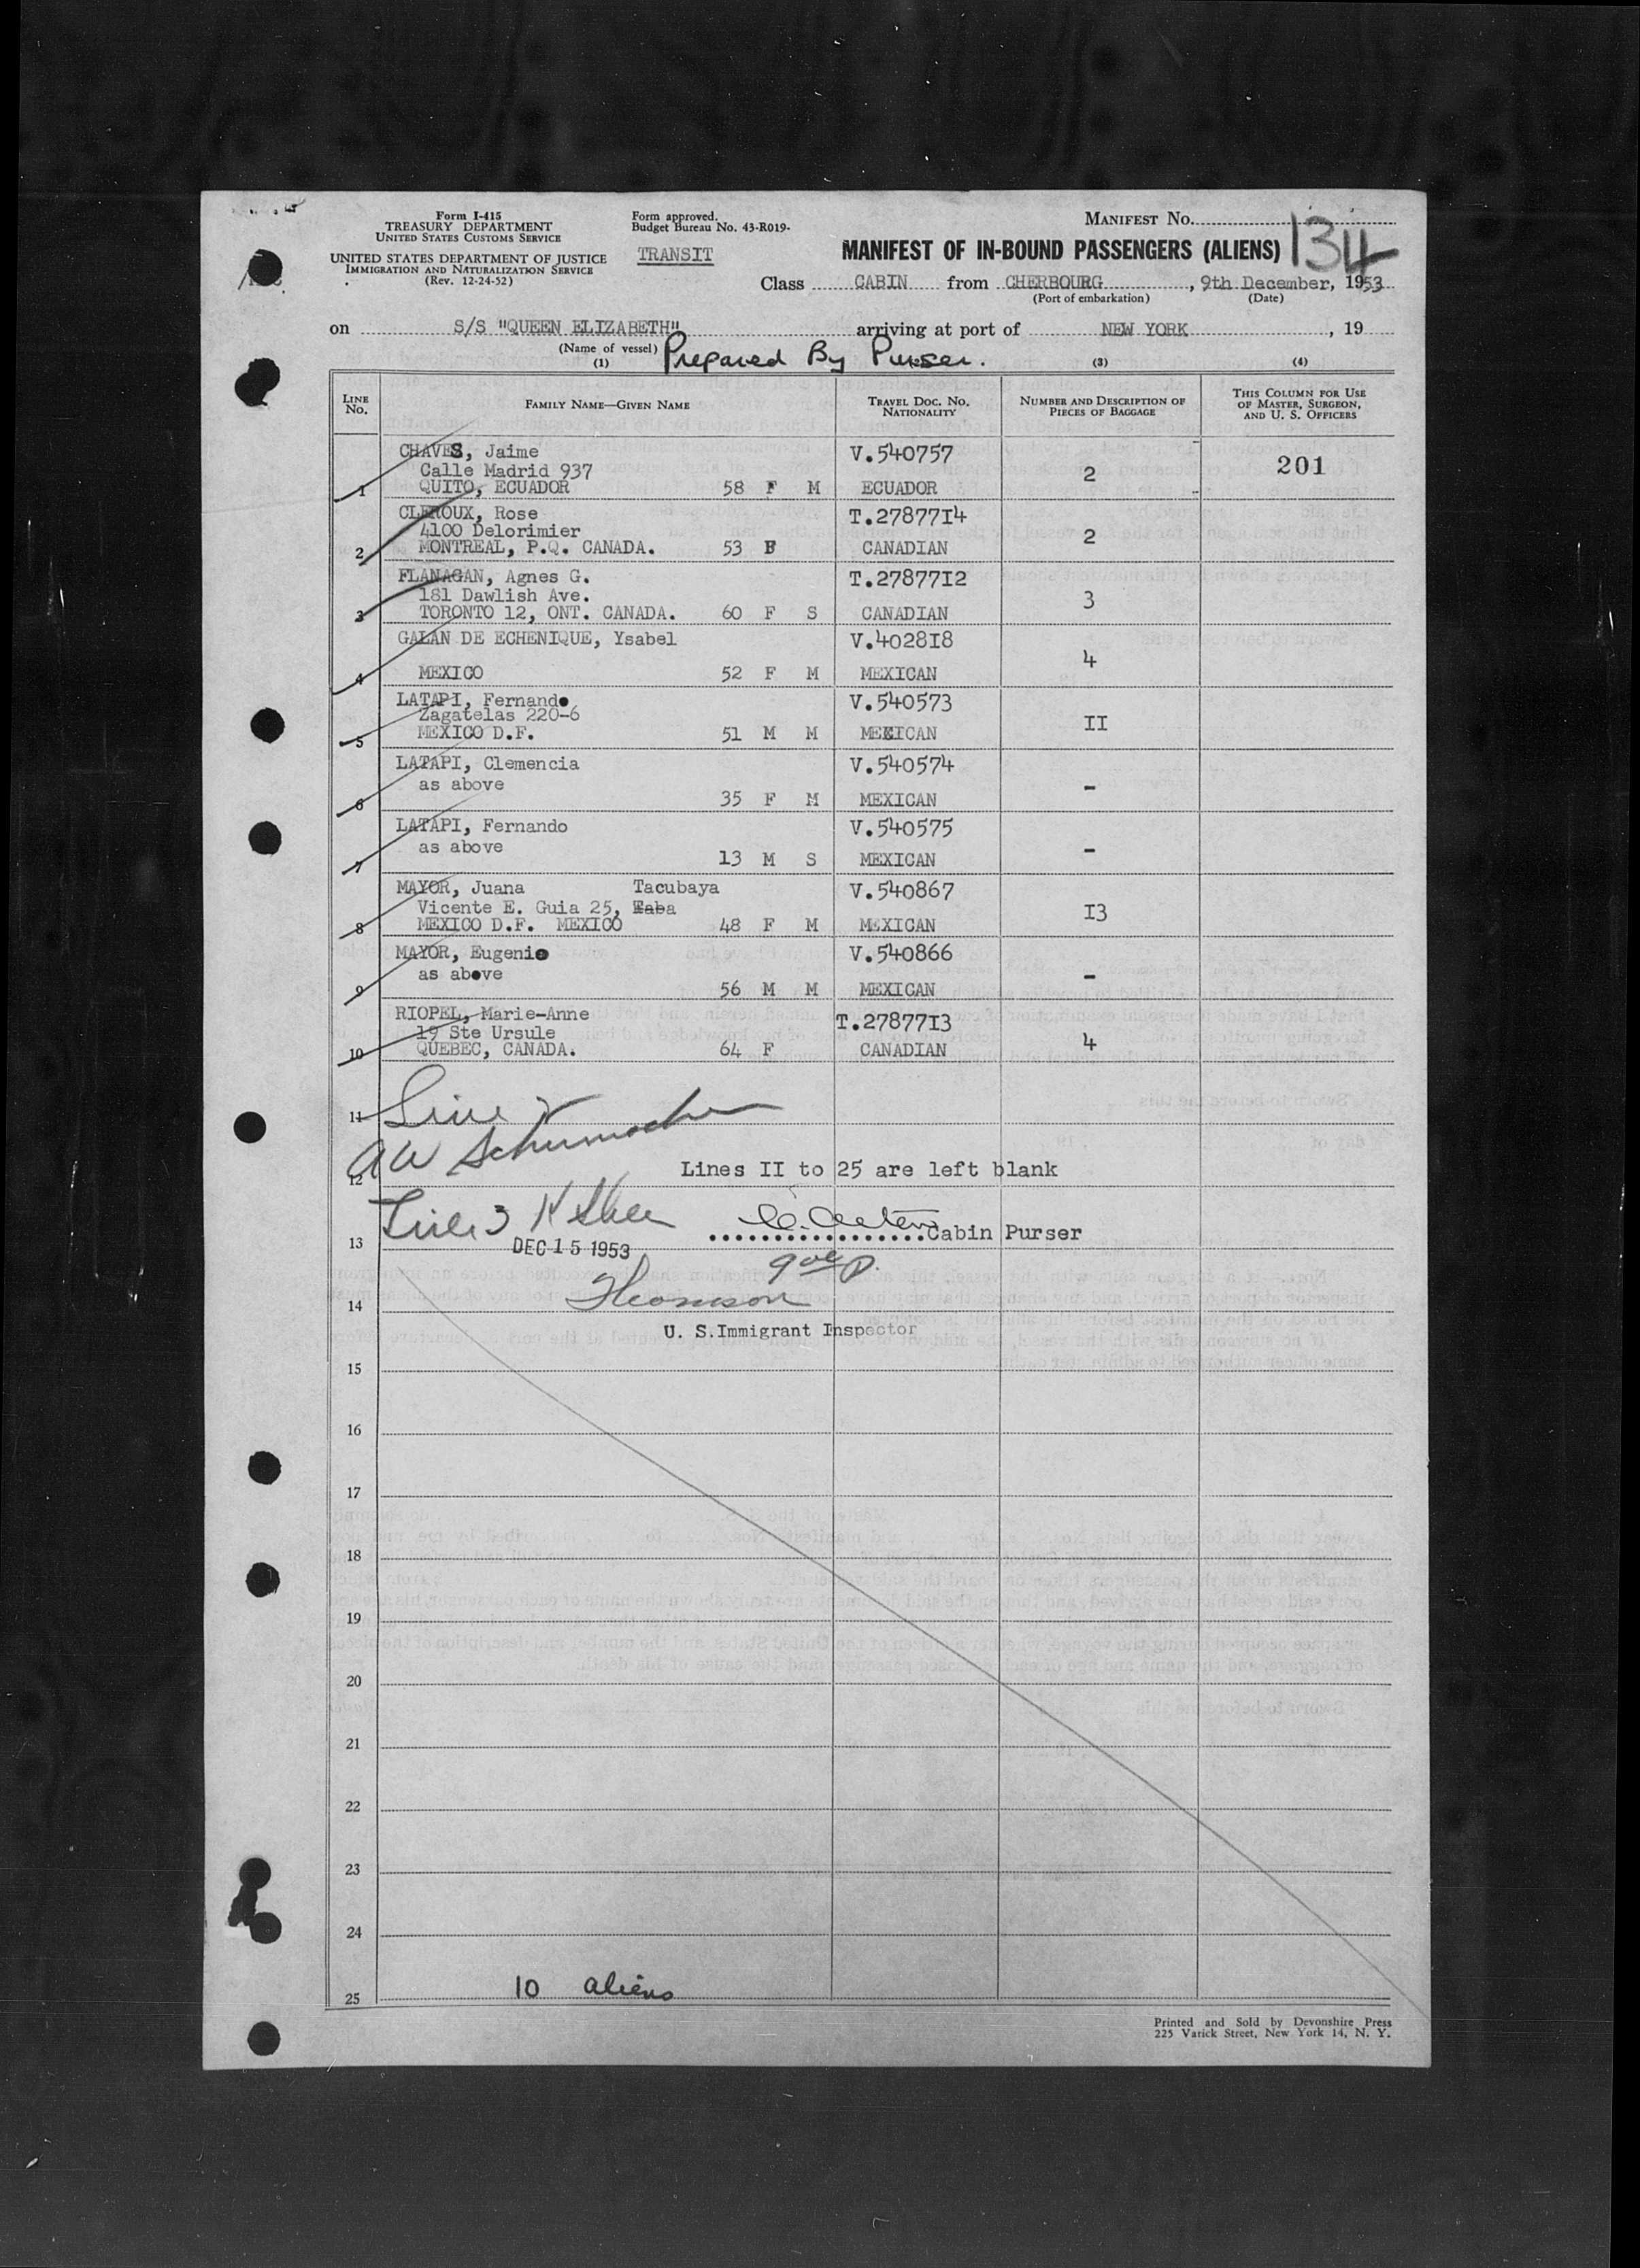 Form I-415
TREASURY DEPARTMENT
UNITED STATES CUSTOMS SERVICE
UNITED STATES DEPARTMENT OF JUSTICE
IMMIGRATION AND NATURALIZATION SERVICE
(Rev. 12-24-52)
Form approved.
Budget Bureau No. 43-R019-
TRANSIT
MANIFEST NO.
134
MANIFEST OF IN-BOUND PASSENGERS (ALIENS)
Class CABIN from CHERBOURG, 9th December, 1953
(Port of embarkation) (Date)
on S/S "QUEEN ELIZABETH" arriving at port of NEW YORK, 19
(Name of vessel)
Prepared By Purser.
(1) (3) (4)
LINE NO. FAMILY NAME—GIVEN NAME TRAVEL DOC. NO. NATIONALITY NUMBER AND DESCRIPTION OF PIECES OF BAGGAGE THIS COLUMN FOR USE OF MASTER, SURGEON, AND U. S. OFFICERS
CHAVES, Jaime V.540757 201
Calle Madrid 937 2
1 QUITO, ECUADOR 58 F M ECUADOR
CLEROUX, Rose T.2787714
4100 Delorimier 2
2 MONTREAL, P.Q. CANADA. 53 F CANADIAN
FLANAGAN, Agnes G. T.27877I2
181 Dawlish Ave. 3
3 TORONTO 12, ONT. CANADA. 60 F S CANADIAN
GALAN DE ECHENIQUE, Ysabel V.4028I8
4
4 MEXICO 52 F M MEXICAN
LATAPI, Fernando V.540573
Zagatelas 220-6 II
5 MEXICO D.F. 51 M M MEXICAN
LATAPI, Clemencia V.540574
as above -
6 35 F M MEXICAN
LATAPI, Fernando V.540575
as above -
7 13 M S MEXICAN
MAYOR, Juana Tacubaya V.540867
Vicente E. Guia 25, Taba I3
8 MEXICO D.F. MEXICO 48 F M MEXICAN
MAYOR, Eugenio V.540866
as above -
9 56 M M MEXICAN
RIOPEL, Marie-Anne T.27877I3
19 Ste Ursule 4
10 QUEBEC, CANADA. 64 F CANADIAN
11 Line
AW Schumacher
12 Lines II to 25 are left blank
Line 3
Cabin Purser
13 DEC 15 1953
Thomson
14
U. S. Immigrant Inspector
15
16
17
18
19
20
21
22
23
24
25 10 aliens
Printed and Sold by Devonshire Press
225 Varick Street, New York 14, N. Y.